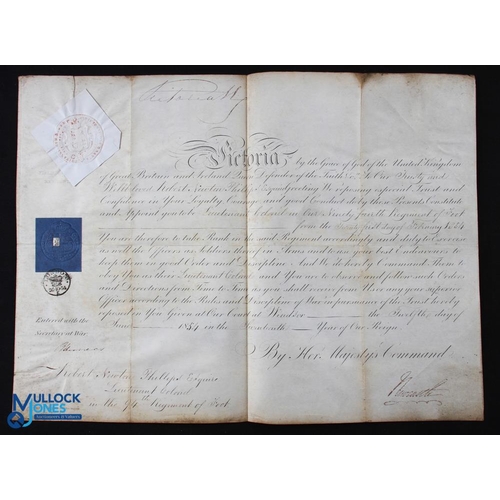 Victoria R
Victoria by the Grace of God of the United Kingdom
of Great Britain and Ireland Queen Defender of the Faith &c To Our Trusty and
Wellbeloved Robert Newton Phillips Esquire Greeting We reposing especial Trust and
Confidence in Your Loyalty Courage and good Conduct do by these Presents Constitute
and Appoint you to be Lieutenant Colonel in Our Ninety fourth Regiment of Foot
from the first day of February 1854
You are therefore to take Rank in the said Regiment accordingly and duly to Exercise
as well the Officers as Soldiers thereof in Arms and to use your best Endeavours to
keep them in good Order and Discipline And We do hereby Command them to
obey You as their Lieutenant Colonel and You are to observe and follow such Orders
and Directions from Time to Time as you shall receive from Us or any your superior
Officer according to the Rules and Discipline of War in pursuance of the Trust hereby
reposed in You Given at Our Court at Windsor the day of
1854 in the Year of Our Reign
Entered with the
Secretary at War
By Her Majesty's Command
Newcastle
Robert Newton Phillips Esquire
Lieutenant Colonel
in the 94th Regiment of Foot
MULLOCK
JONES
Auctioneers & Valuers